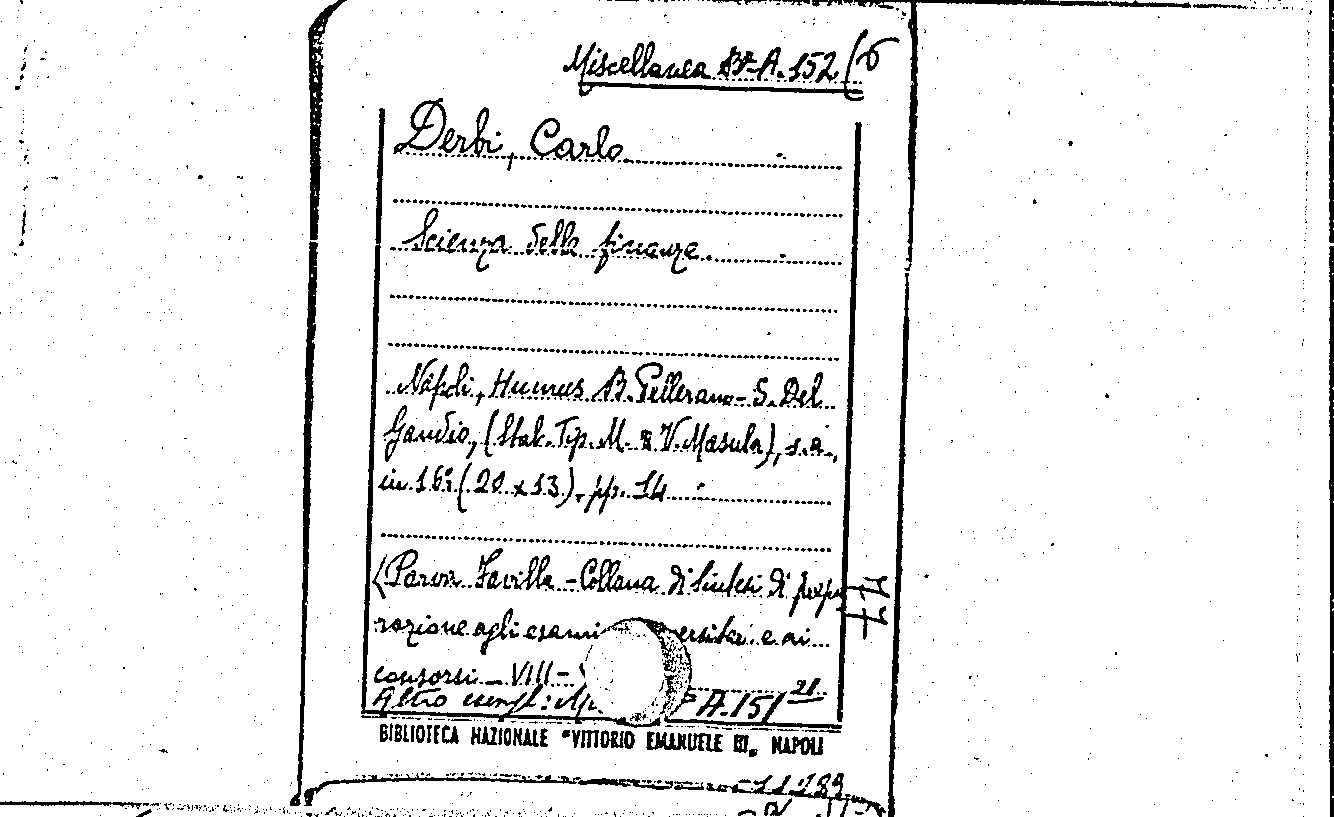 Miscellanea Bª A. 152/6
Derbi, Carlo
Scienza delle finanze.
Napoli, Humus B. Pellerano - S. Del
Gaudio, (Stab. Tip. M. & V. Masula), s.a.,
in 16º (20 x 13), pp. 14
(Parva Favilla - Collana di sintesi di prepa
razione agli esami ersitari e ai
consorsi - VIII -
Altro esempl: A. 151 21
BIBLIOTECA NAZIONALE "VITTORIO EMANUELE III„ NAPOLI